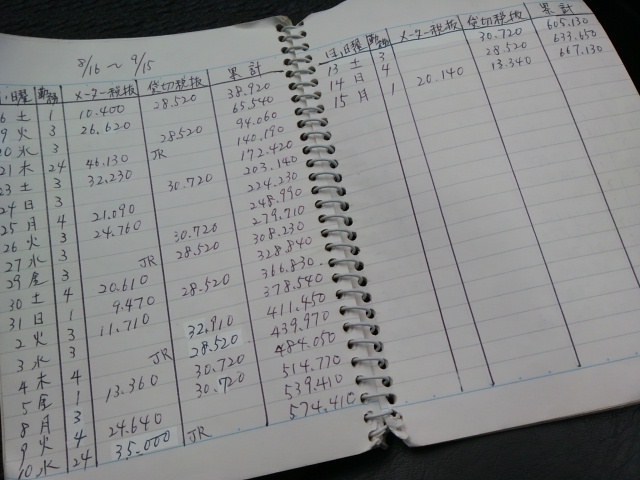 8/16 ～ 9/15
・曜 勤務 メーター税抜 貸切税抜 累計
6 土 1 10.400 28.520 38.920
9 火 3 26.620 65.540
20 水 3 28.520 94.060
21 木 24 46.130 JR 140.190
23 土 3 32.230 172.420
24 日 3 30.720 203.140
25 月 4 21.090 224.230
26 火 3 24.760 248.990
27 水 3 JR 30.720 279.710
29 金 3 28.520 308.230
30 土 4 20.610 328.840
31 日 1 9.470 28.520 366.830
2 火 3 11.710 378.540
3 水 3 32.910 411.450
4 木 4 JR 28.520 439.970
5 金 1 13.360 30.720 484.050
8 月 3 30.720 514.770
9 火 4 24.640 539.410
10 水 24 35.000 JR 574.410
日,曜 勤務 メーター税抜 貸切税抜 累計
13 土 3 30.720 605.130
14 日 4 28.520 633.650
15 月 1 20.140 13.340 667.130